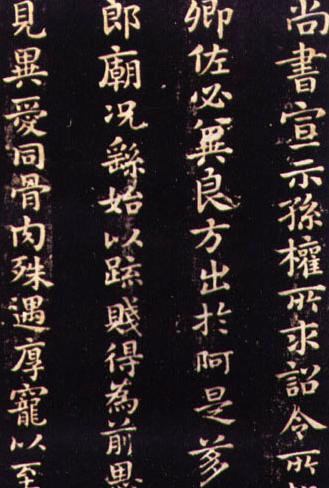 尚書宣示孫權所求詔令所
卿佐必冀良方出於阿是芻
郎廟况繇始以踈賤得為前恩
見異愛同骨肉殊遇厚寵以至